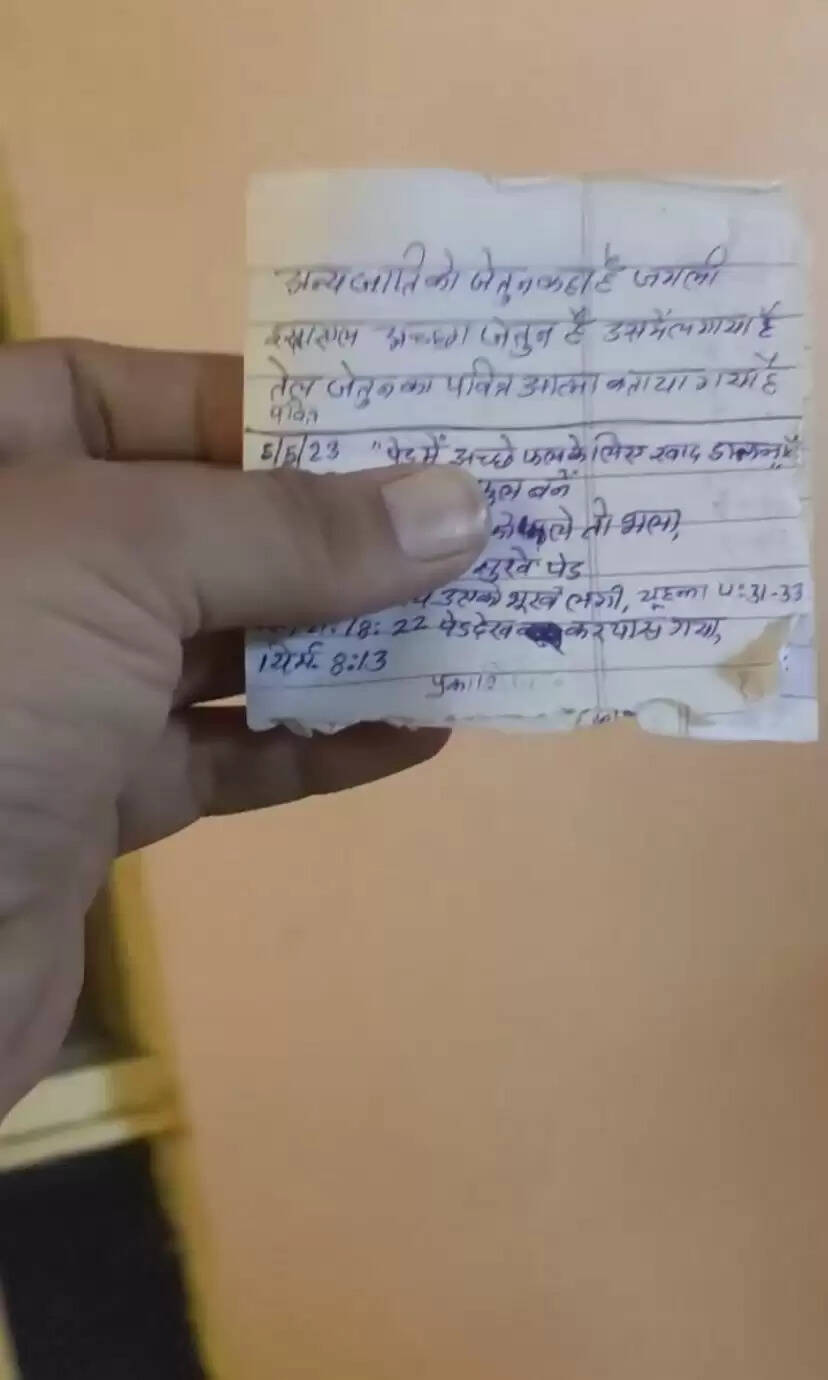 अन्य जाति को जेतुन कहा है जगली
इस्राएल अच्छा जेतुन है उसमें लगाया है
तेल जेतुन का पवित्र आत्मा बताया गया है
पवित्र
5/5/23 "पेड में अच्छे फल के लिए खाद डालना है
फल बनें
को फले तो भला,
सुखे पेड
उसको भूख लगी, यूहन्ना 4:31-33
18:22 पेड देख कर पास गया,
यिर्म 8:13